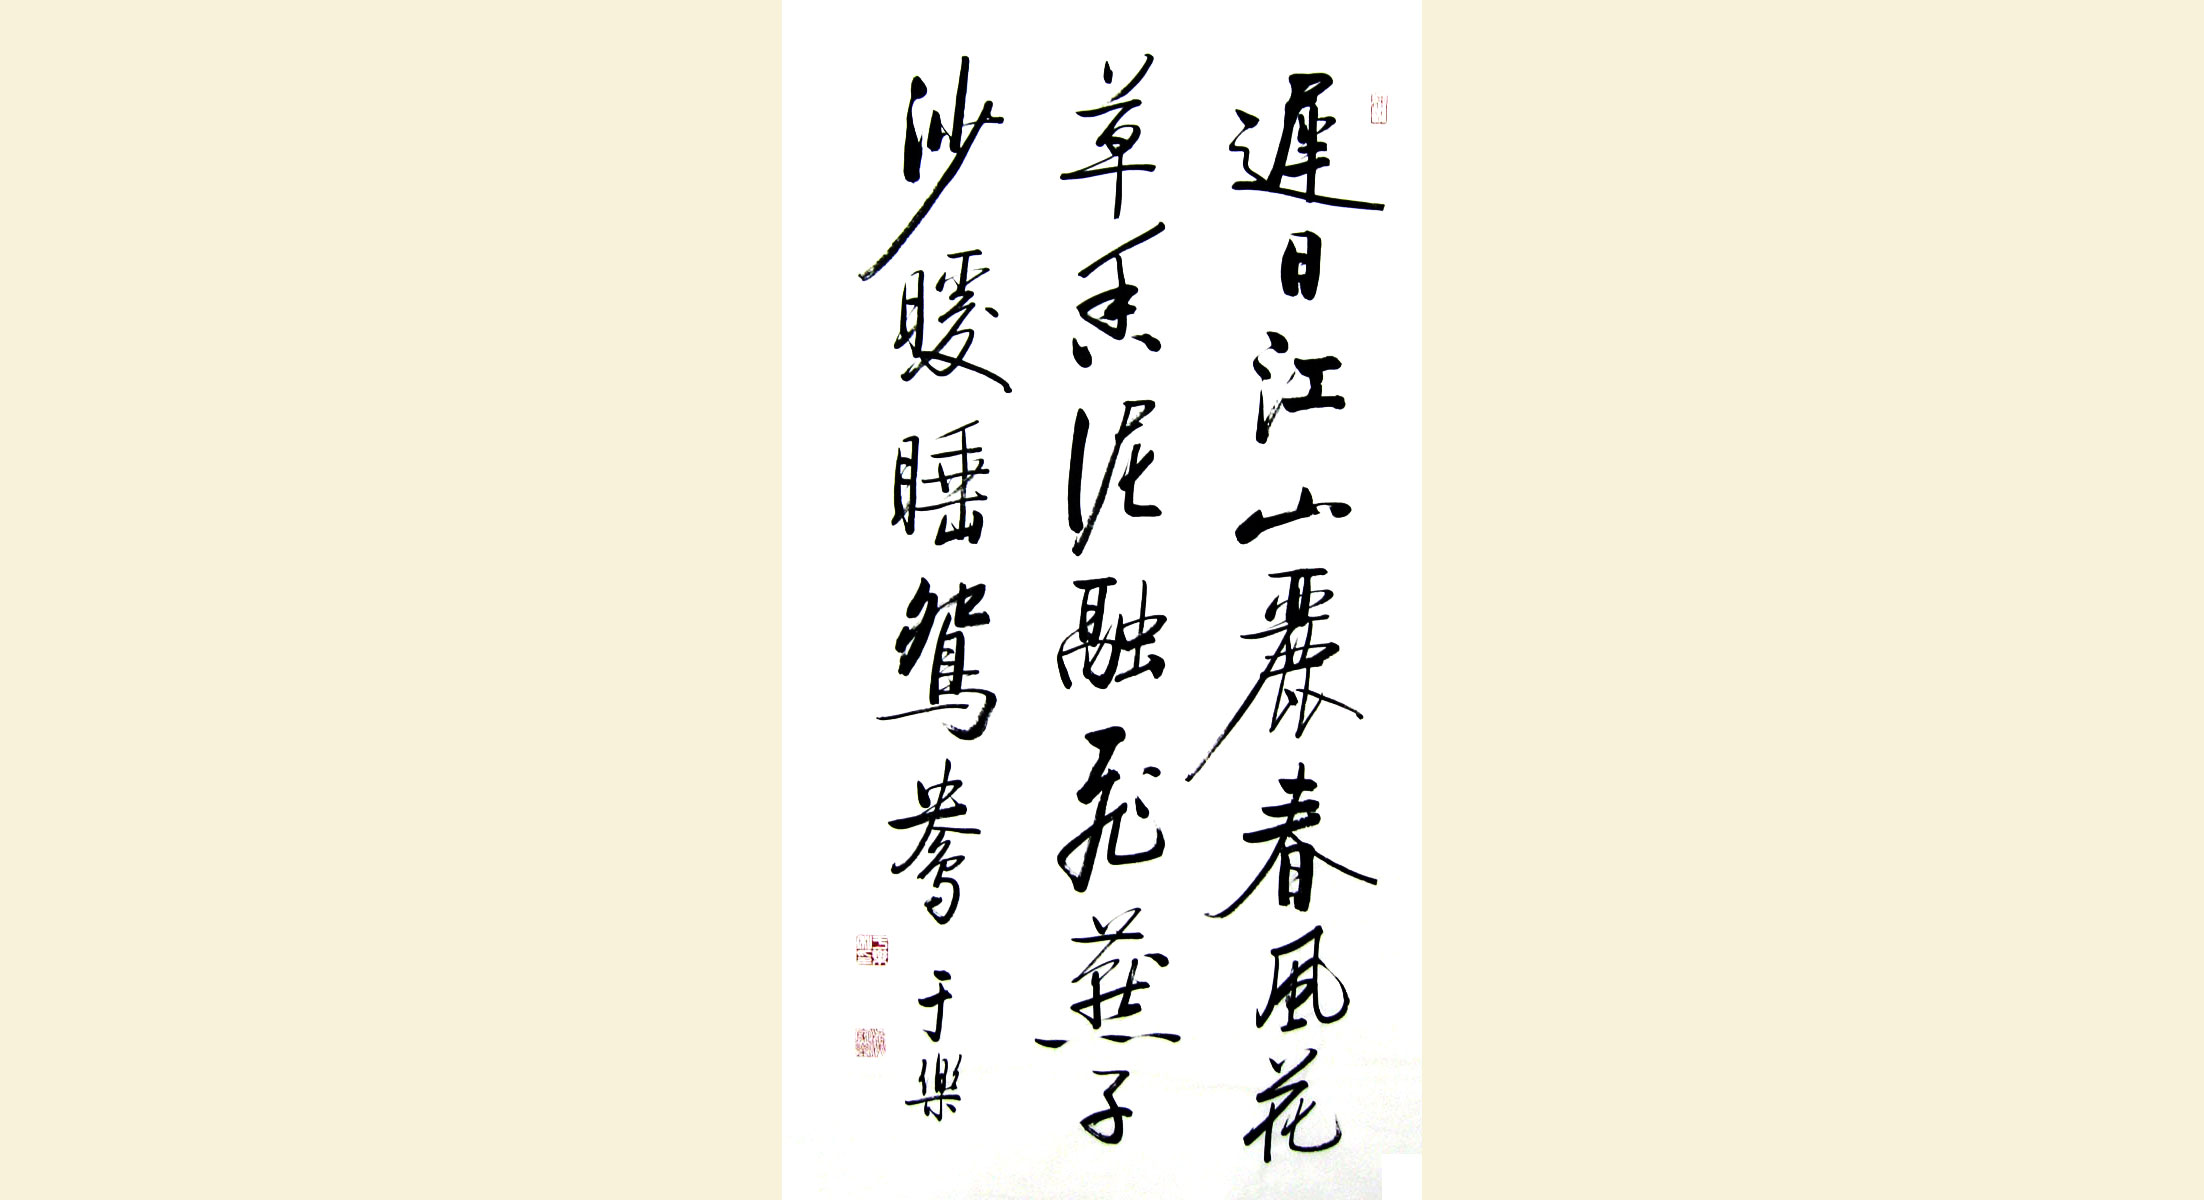 遲日江山麗春風花
草香泥融飛燕子
沙暖睡鴛鴦
于樂